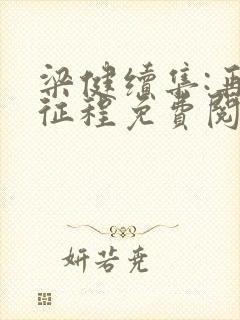 梁健续集:再
征程免费阅
妍若尧